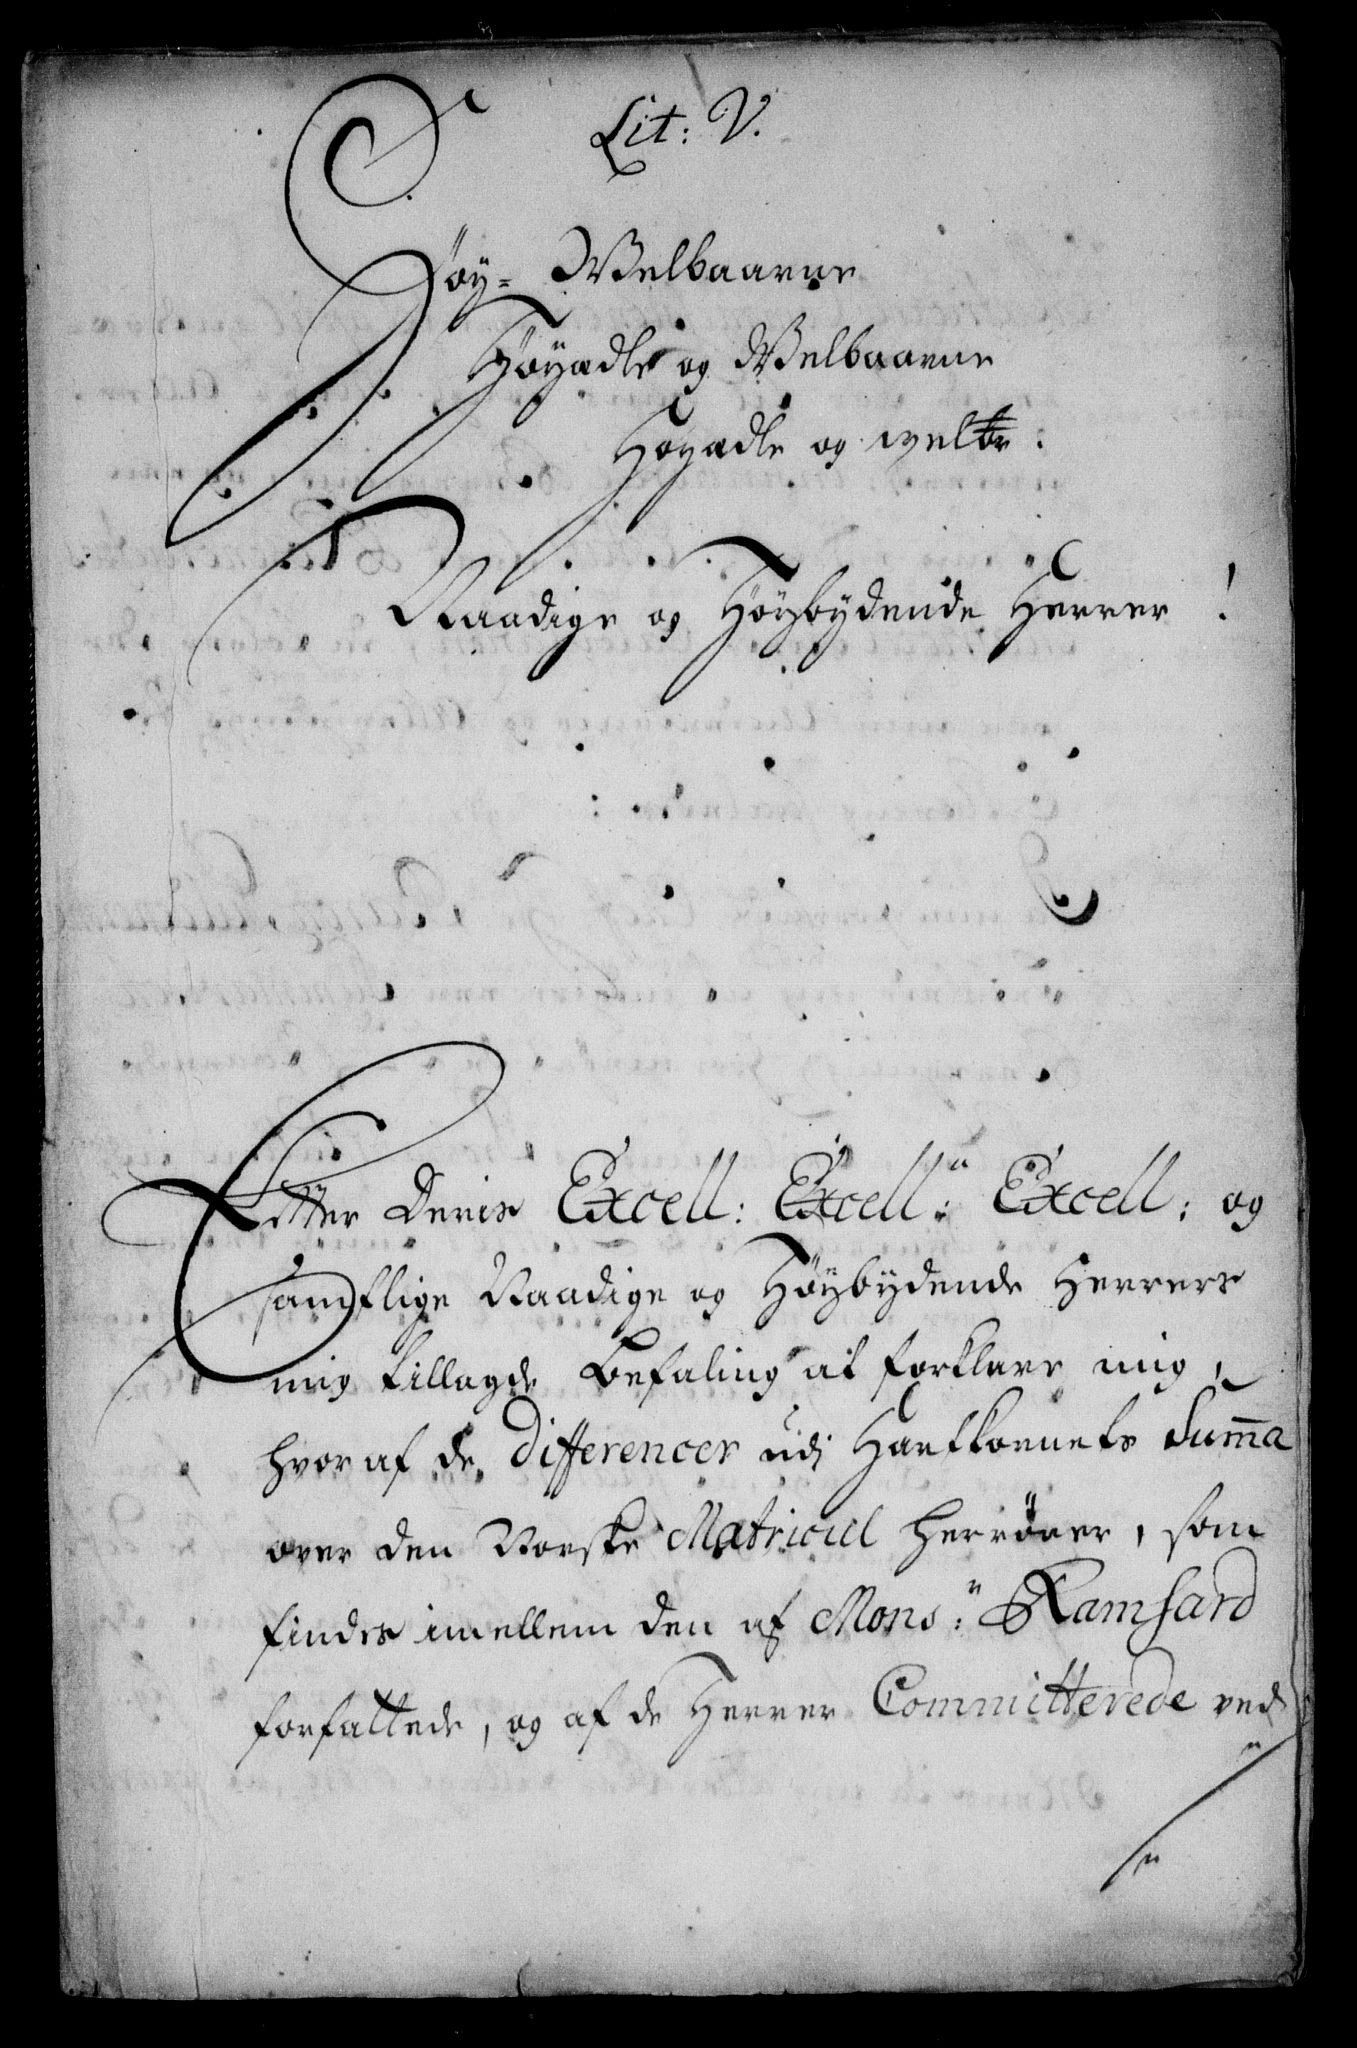 Lit: V.
Høy= Welbaarne
Høyadle og Welbaarne
Høyadle og welbr:
Naadige og Høybydende Herrer!
Efter Deris Excell: Excell: Excell: og
samtlige Naadige og Høybydende Herrers
mig tillagde Befaling at forklare mig,
hvor af de Differencer udj Hartkornets Sum̄a
over den Norske Matricul herrører, som
findes imellem den af Mons:r Ramshard
forfattede, og af de Herrer Committerede ved